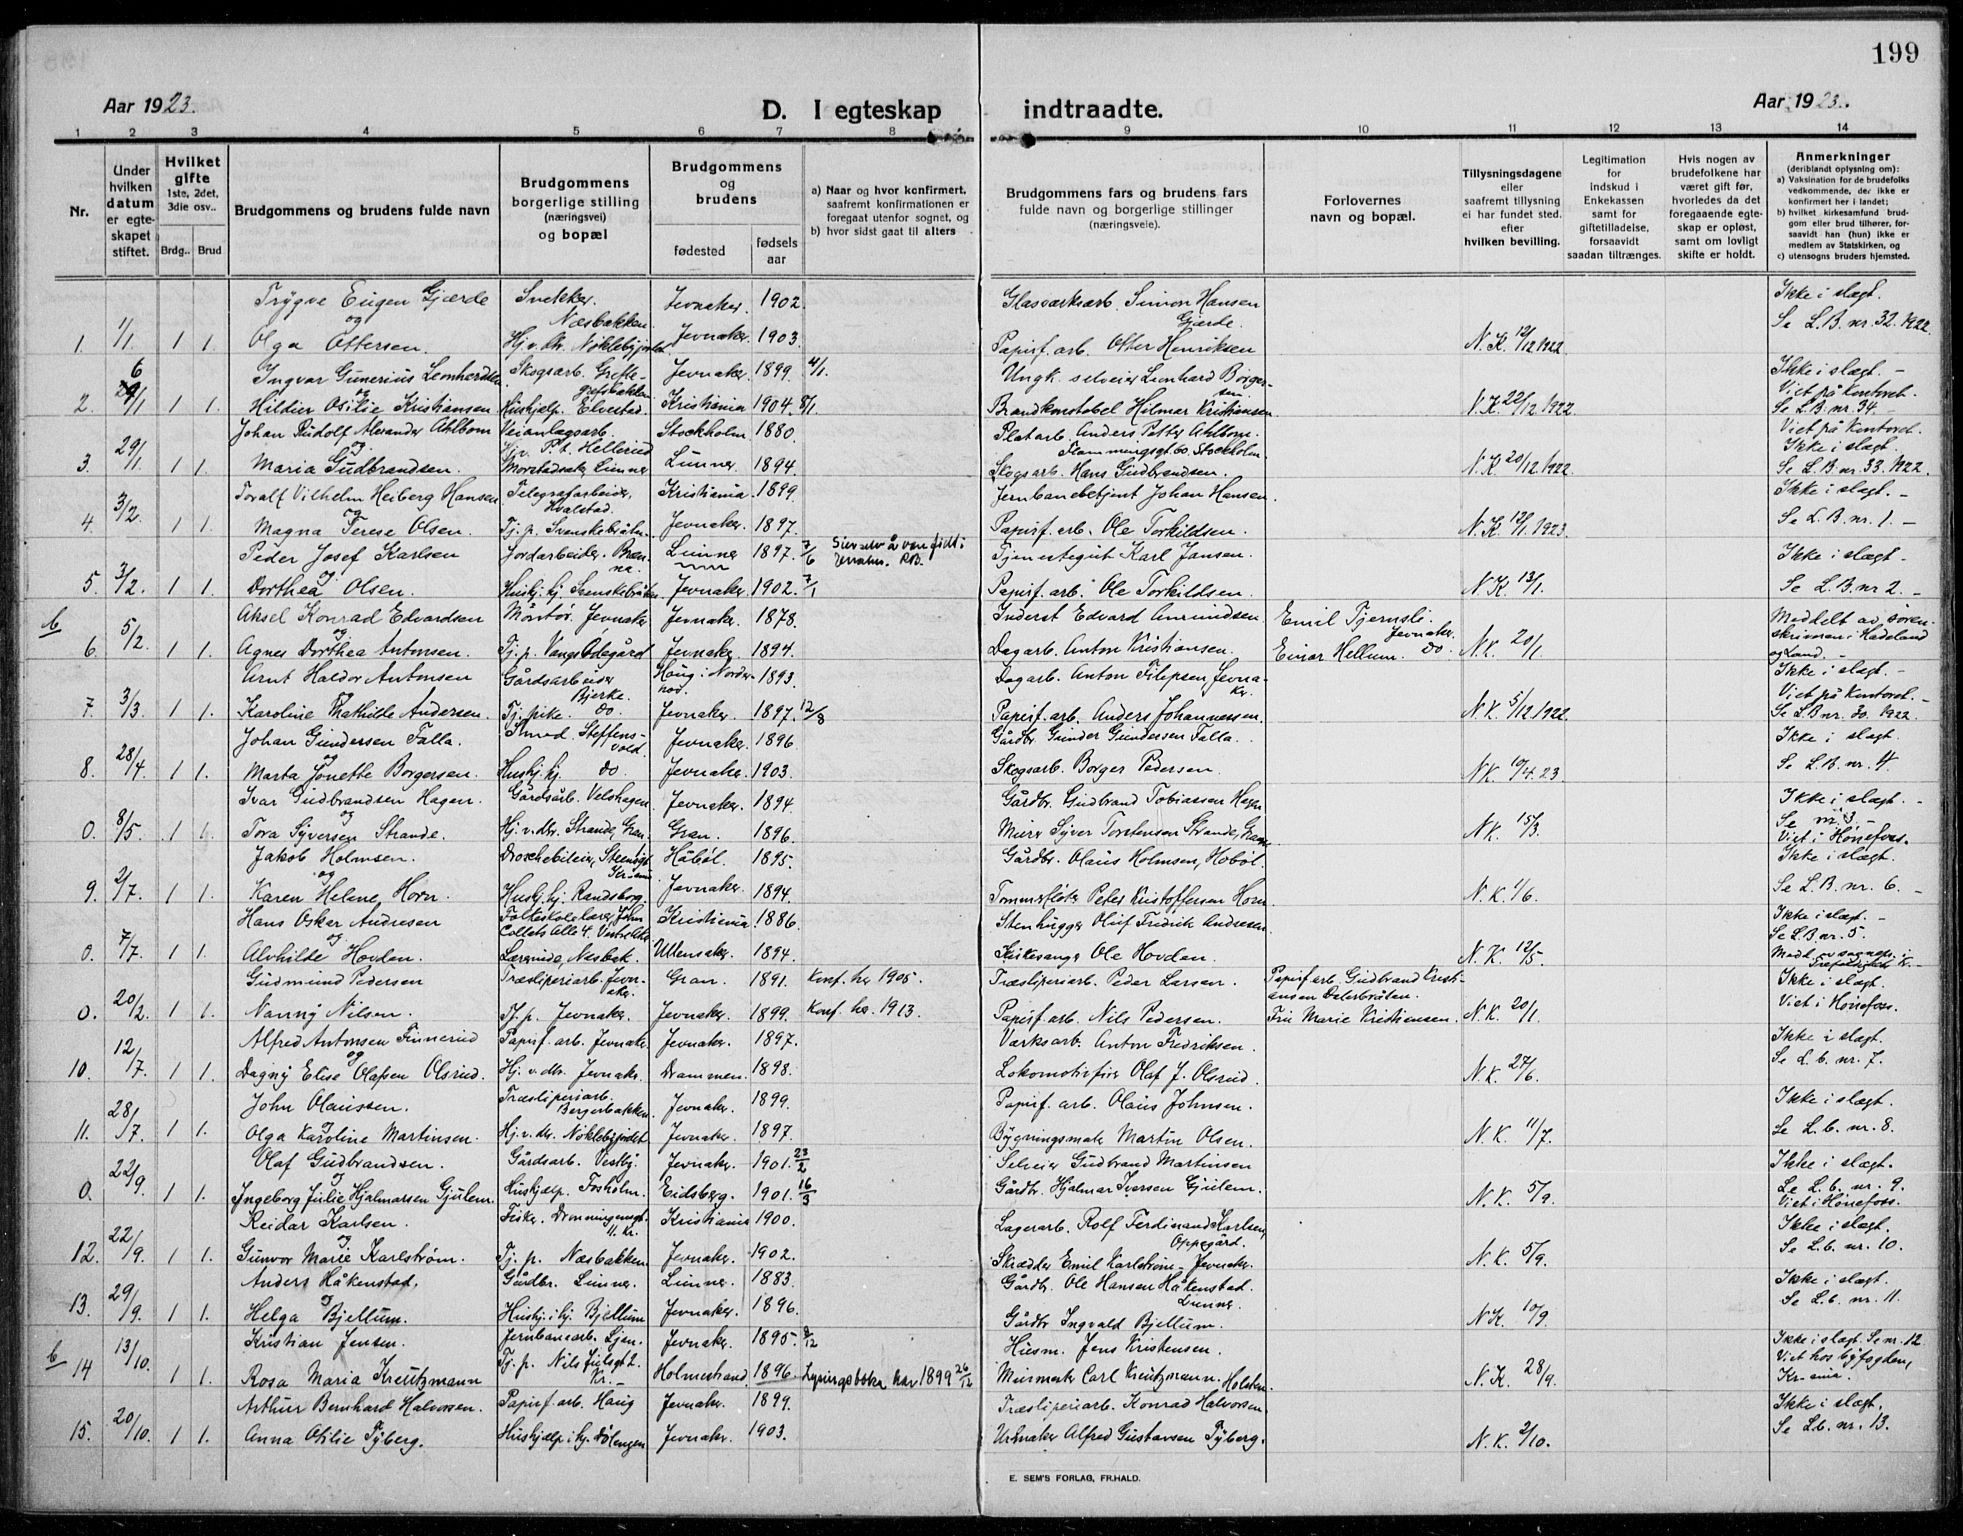 199
Aar 1923.
D. I egteskap indtraadte.
Aar 1923.
1 2 3 4 5 6 7 8 9 10 11 12 13 14
Nr.
Under hvilken datum er egteskapet stiftet.
Hvilket gifte 1ste, 2det, 3die osv..
Brdg.. Brud
Brudgommens og brudens fulde navn
Brudgommens borgerlige stilling (næringsvei) og bopæl
Brudgommens og brudens
fødested
fødsels aar
a) Naar og hvor konfirmert, saafremt konfirmationen er foregaat utenfor sognet, og
b) hvor sidst gaat til alters
Brudgommens fars og brudens fars fulde navn og borgerlige stillinger (næringsveie).
Forlovernes navn og bopæl.
Tillysningsdagene eller saafremt tillysning ei har fundet sted. efter hvilken bevilling.
Legitimation for indskud i Enkekassen samt for giftetilladelse, forsaavidt saadan tiltrænges.
Hvis nogen av brudefolkene har været gift før, hvorledes da det foregaaende egteskap er opløst, samt om lovligt skifte er holdt.
Anmerkninger (deriblandt oplysning om):
a) Vaksination for de brudefolks vedkommende, der ikke er konfirmert her i landet;
b) hvilket kirkesamfund brudgom eller brud tilhører, forsaavidt han (hun) ikke er medlem av Statskirken, og
c) utensogns bruders hjemsted.
Trygve Eugen Gjærde Snekker. Næsbakken. Jevnaker 1902. Glasværksarb. Simon Hansen Gjærde. Ikke i slægt.
1. 1/1 1 1. og Olga Ottersen. Hj. v. dr. Nøklebyjordet Jevnaker 1903. Papirf. arb. Otter Henriksen N.K. 12/12 1922. Se L.B. nr. 32. 1922
Ingvar Gunerius Leonhardsen Skogsarb. Jevnaker. 1899. 4/1. Ungk. selveier Leonhard Borgersen Ikke i slægt. - Viet på Kontoret.
2. 6/1 1 1. og Hildur Otilie Kristiansen Hushjælp. Elvestad. Kristiania 1904. 8/1 Brandkonstabel Hilmar Kristiansen N.K. 22/12 1922. Se L.B. nr. 34. -
Johan Rudolf Alexander Ahlbom Veianlægsarb. P.t. Hellerud Stockholm 1880. Platarb. Anders Petter Ahlbom. Stockholm. Viet på Kontoret. Ikke i slægt.
3. 29/1 1 1. og Maria Gudbrandsen. Lunner Lunner 1894. Skogsarb. Hans Gudbrandsen. N.K. 20/12 1922. Se L.B. nr. 33. 1922.
Toralf Vilhelm Heiberg Hansen Telegrafarbeider, Hvalstad. Kristiania 1899. Jernbanebetjent Johan Hansen. Ikke i slægt. -
4. 3/2. 1 1. og Magna Terese Olsen. Tj. p. Svenskebråten. Jevnaker. 1897. Papirf. arb. Ole Torkildsen. N.K. 12/1 1923. Se L.B. nr. 1. -
Peder Josef Karlsen Jordarbeider. Brænna. Lunner 1897. 7/6 Sier selv å være født i Jevnaker. RB. Tjenestegut Karl Jansen. Ikke i slægt -
5. 3/2. 1 1. og Dorthea Olsen. Hushj. hj. Svenskebråten Jevnaker 1902. 7/1 Papirf. arb. Ole Torkildsen. N.K. 13/1. Se L.B. nr 2. -
b Aksel Konrad Edvardsen Montør. Jevnaker Jevnaker. 1878. Inderst Edvard Amundsen Emil Tjernsli. Jevnaker. Meddelt av sorenskriveren i Hadeland og Land. -
6. 5/2. 1 1. og Agnes Dorthea Antonsen. Tj. p. Vangs Ødegård Jevnaker. 1894. Dagarb. Anton Kristiansen. Einar Hellum. do. N.K. 20/1.
Arnt Haldor Antonsen Gårdsarbeider Bjerke. Haug i Norderhod. 1893. Dagarb. Anton Filipsen, Jevnaker. Ikke i slægt. - Viet på Kontoret. -
7. 3/3. 1 1. Karoline Mathilde Andersen. Tj. pike. do. Jevnaker. 1897. 12/8 Papirf. arb. Anders Johannessen. N.K. 5/12 1922. Se L.B. nr. 30. 1922. -
Johan Gundersen Falla. Smed. Steffensvold. Jevnaker. 1896. Gårdbr. Gunder Gundersen Falla. Ikke i slægt.
8. 28/4. 1 1. og Marta Jonette Borgersen. Hushj. hj. do. Jevnaker. 1903. Skogsarb. Borger Pedersen. N.K. 10/4.23 Se L.B. nr. 4.
Ivar Gudbrandsen Hagen. Gårdsarb. Velshagen. Jevnaker. 1894. Gårdbr. Gudbrand Tobiassen Hagen Ikke i slægt. -
0. 8/5. 1 1. og Tora Syversen Strande. Hj. v. dr. Strande, Gran. Gran. 1896. Murer Syver Torstensen Strande, Gran N.K. 15/3. Se nr 3. - Viet i Hønefoss.
Jakob Holmsen. Droschebileier, Håbøl. 1895. Gårdbr. Olaus Holmsen, Hobøl. Ikke i slægt.
9. 2/7. 1 1. og Karen Helene Horn. Hushj. hj. Randsborg. Jevnaker. 1894. Tømmerfløter Peter Kristoffersen Horn N.K. 1/6. Se L.B. nr. 6. -
Hans Oskar Andresen Folkeskolelærer, John Collets Alle 4. Vestre Aker Kristiania 1886. Stenhugger Oluf Fredrik Andresen Ikke i slægt. -
0. 7/7. 1 1. og Alvhilde Hovden. Lærerinde, Næsbak. Ullensaker. 1894. Kirkesanger Ole Hovdan. N.K. 12/5. Se L.B. nr. 5.
Gudmund Pedersen Træsliperiarb. Jevnaker. Gran. 1891. Konf. her 1905. Træsliperiarb. Peder Larsen. Papirf. arb. Gudbrand Kristiansen Dalerbråten. Ikke i slægt.
0. 20/2. 1 1. Nanny Nilsen. Tj. p. Jevnaker. Jevnaker. 1899. Konf. her. 1913. Papirf. arb. Nils Pedersen. Fru Marie Kristiansen. N.K. 20/1. Viet i Hønefoss.
Alfred Antonsen Finnerud Papirf. arb. Jevnaker Jevnaker. 1897. Værksarb. Anton Fredriksen. Ikke i slægt.
10. 12/7. 1 1. og Dagny Elise Olafsen Olsrud. Hj. v. dr. Jevnaker. Drammen. 1898. Lokomotivfører Olaf J. Olsrud. N.K. 27/6. Se L.b. nr. 7.
John Olaussen. Træsliperiarb. Bergerbakken. Jevnaker. 1899. Papirf. arb. Olaus Johnsen. Ikke i slægt.
11. 28/7. 1 1. og Olga Karoline Martinsen. Hj. v. dr. Nøklebyjordet Jevnaker. 1897. Bygningsmakr Martin Olsen. N.K. 11/7. Se L.b. nr. 8.
Olaf Gudbrandsen. Gårdsarb. Vestby. Jevnaker. 1901. 23/2 Selveier Gudbrand Martinsen Ikke i slægt.
0. 22/9. 1 1. og Ingeborg Julie Hjalmarsen Gjulem. Hushjælp. Fosholm. Eidsberg. 1901. 16/3 Gårdbr. Hjalmar Iversen Gjulem. N.K. 5/9. Se L.b. nr. 9. Viet i Hønefoss.
Reidar Karlsen. Dronningensgt. 11. Kr. Kristiania 1900. Lagerarb. Rolf Ferdinand Karlsen, Oppegård. Ikke i slægt.
12. 22/9. 1 1. og Gunvor Marie Karlstrøm. Tj. p. Næsbakken. Jevnaker. 1902. Skrædder Emil Karlstrøm - Jevnaker. N.K. 5/9. Se L.b. nr. 10.
Anders Håkenstad, Gårdbr. Lunner. Lunner. 1883. Gårdbr. Ole Hansen Håkenstad. Lunner. Ikke i slægt.
13. 29/9. 1 1. og Helga Bjellum. Hushj. i hj. Bjellum Jevnaker. 1896. Gårdbr Ingvald Bjellum. N.K. 10/9. Se L.b. nr. 11.
b Kristian Jensen. Jernbanearb. Ljan. Jevnaker. 1895. Husm. Jens Kristensen. Ikke i slægt. Se nr. 12
14 13/10. 1 1. Rosa Maria Kreutzmann Tj. p. Nils Juelsgt 2. Kr. - Holmestrand. 1896. Lysningsboka har 1899 26/12 Murmester Carl Kreutzmann. Holstein. N.K. 28/9. Viet hos byfogden, Kr-ania.
Arthur Bernhard Halvorsen. Papirf. arb. Haug Jevnaker. 1899. Træsliperiarb. Konrad Halvorsen. Ikke i slægt.
15. 20/10. 1 1. Anna Otilie Tyberg. Hushjælp i hj. Dølengen Jevnaker. 1903. Urmaker Alfred Gustavsen Tyberg. N.K. 2/10. Se L.b. nr. 13.
E. SEM'S FORLAG, FR.HALD.